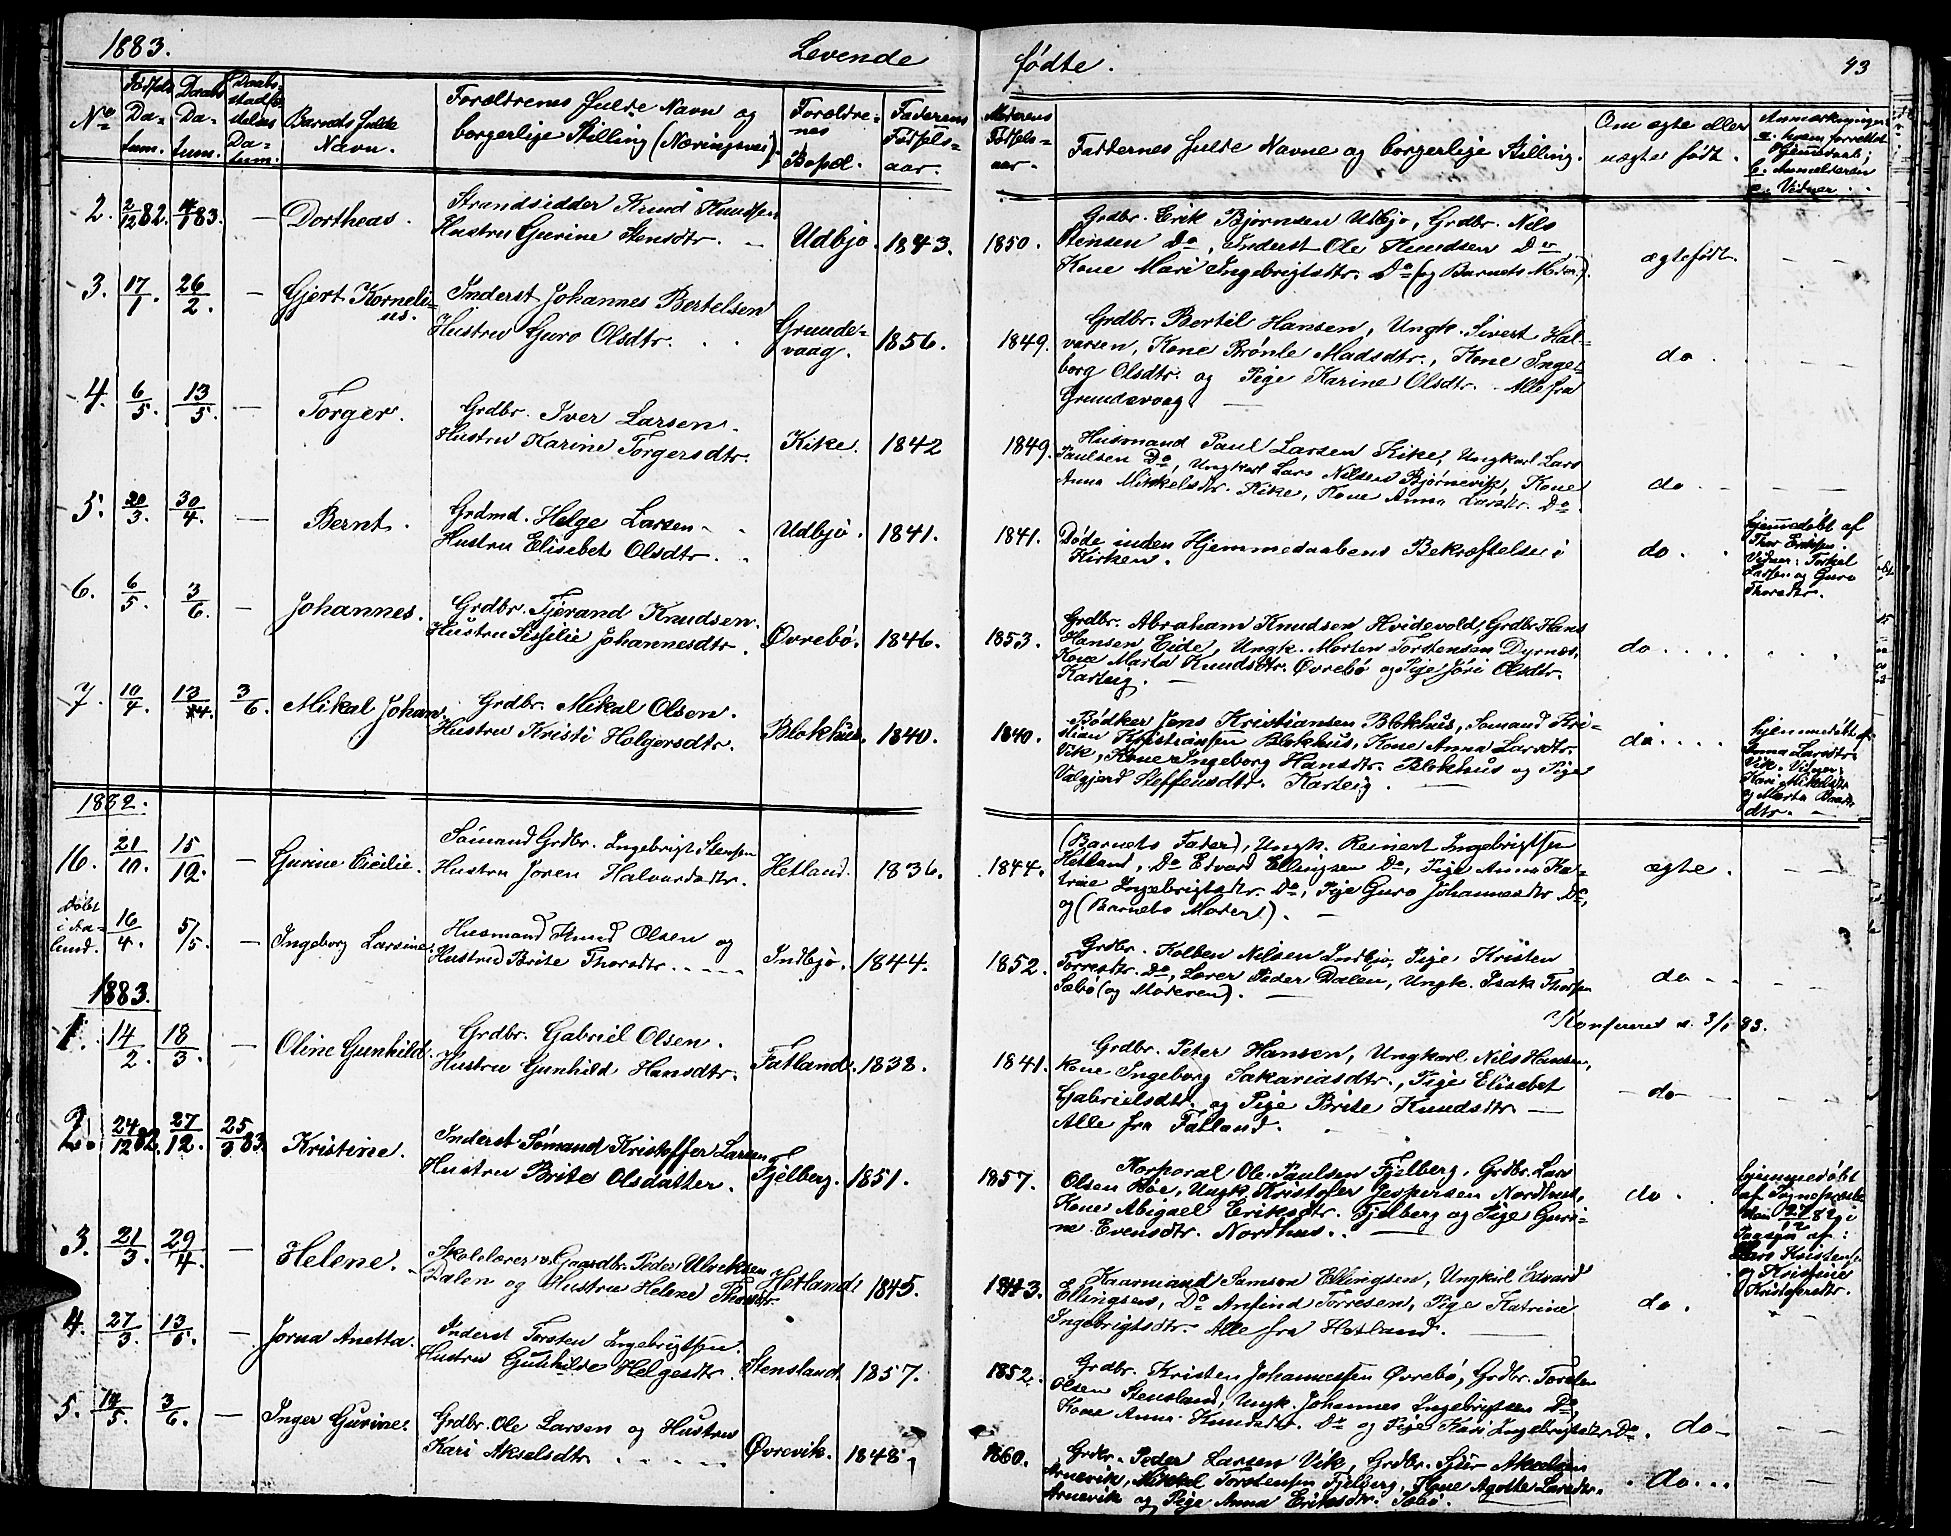 1883. Levende fødte. 93
No
Fødsels Da- tum.
Daabs Da- tum.
Daabs- stadfæ- stelses Da- tum.
Barnets fulde Navn.
Forældrenes fulde Navn og borgerlige Stilling (Næringsvei).
Forældre- nes Bopæl.
Faderens Fødsels- aar.
Moderens Fødsels- aar.
Faddernes fulde Navne og borgerlige Stilling.
Om ægte eller uægte født.
Anmærkninger
a. hvem forrettet Hjemmedaab;
b. Anmelderen
c. Vidner.
2. 2/12 82. 4/1 83. — Dortheas.
Strandsidder Knud Knudsen
Hustru Gurine Stensdtr. — Udbjo. 1843. 1850.
Grdbr. Erik Bjørnsen Udbjo, Grdbr. Nils
Stensen Do, Inderst Ole Knudsen Do
Kone Mari Ingebrigtsdtr. Do (og Barnets Moder).
ægtefødt. — —
3. 17/1. 26/2. — Gjert Korneli-
us.
Inderst Johannes Bertelsen
Hustru Guro Olsdtr. . . Grunde-
vaag. 1856. 1849.
Grdbr. Bertil Hansen, Ungk. Sivert Hal-
varsen, Kone Brønle Madsdtr., Kone Inge-
borg Olsdtr. og Pige Karine Olsdtr. Alle fra
Grundevaag. —
do . — —
4. 6/5. 13/5. — Torger.
Grdbr. Iver Larsen.
Hustru Karine Torgersdtr. Kike. 1842 1849.
Husmand Paul Larsen Kike, Ungkarl Lars
Paulsen Do, Ungkarl Lars Nilsen Bjørnevik, Kone
Anna Mikkelsdtr. Kike, Kone Anna Larsdtr. Do
do. — — —
5. 20/3. 30/4. — Bernt.
Grdmd. Helge Larsen.
Hustru Elisebet Olsdtr. . . Udbjo. 1841. 1841.
Døde inden Hjemmedaabens Bekræftelse i
Kirken.
do. .
hjemmedøbt af
Thor Eriksen
Vidner: Torkel
Larsen og Guro
Thorsdtr.
6. 6/5. 3/6. — Johannes.
Grdbr. Tjerand Knudsen.
Hustru Sissilie Johannesdtr. Øvrebö. 1846. 1853.
Grdbr. Abraham Knudsen Hvidevold, Grdbr. Hans
Hansen Eide, Ungk. Morten Torstensen Dyrnæs,
Kone Marta Knudsdtr. Øvrebö og Pige Jóri Olsdtr.
Karteig. —
do . . . . . . .
7. 10/4. 13/4. 3/6. Mikal Johan.
Grdbr. Mikal Olsen.
Hustru Kristi Holgersdtr. Blokhus. 1840. 1840.
Bødker Jens Kristiansen Blokhus, Sømand Kri-
stian Kristiansen Blokhus, Kone Anna Larsdtr.
Vik, Kone Ingeborg Hansdtr. Blokhus og Pige
Valgjerd Steffensdtr. Karteig. —
do . . . .
hjemmedøbt af
Anna Larsdtr.
Vik. Vidner:
Kari Mikalsdtr
og Marta Baards-
dtr. —
1882.
16. 21/10. 15/12. — Gurine Cicilie.
Sømand Grdbr. Ingebrigt Stensen
Hustru Joren Halvardsdtr. Hetland. 1836. 1844.
(Barnets Fader), Ungk. Reinert Ingebrigtsen
Hetland, Do Edvard Ellingsen Do, Pige Anna Ka-
trine Ingebrigtsdtr. Do, Pige Guro Johannesdtr Do,
og (Barnets Moder). —
ægte. — —
Døbt
i Fa-
lund.
16/4. 5/5. — Ingeborg Larsine.
Husmand Knud Olsen og
Hustru Brite Thorsdtr. . . — Indbjo. 1844. 1852.
Grdbr. Kolben Nilsen Indbjo, Pige Kristen
Torresdtr. Do, Lærer Peder Dalen, Ungk. Isak Thorsen
Sæbö (og Moderen). —
do — — —
Konfereret d. 3/1 93.
1883.
1. 14/2. 18/3. — Oline Gunhild.
Grdbr. Gabriel Olsen.
Hustru Gunhild Hansdtr. Fatland. 1838. 1841.
Grdbr. Peter Hansen, Ungkarl Nils Hansen,
Kone Ingeborg Sakariasdtr., Pige Elisebet
Gabrielsdtr. og Pige Brite Knudsdtr —
Alle fra Fatland.
— do — — —
2. 24/12 82. 27/12. 25/3 83. Kristine.
Inderst Sømand Kristoffer Larsen
Hustru Brite Olsdatter. Fjelberg. 1851. 1857.
Korporal Ole Paulsen Fjelberg, Grdbr. Lars
Olsen Høie, Ungk. Kristofer Jespersen Nordhus,
Kone Abigael Eriksdtr. Fjelberg og Pige Guri-
ne Evensdtr. Nordhus. . —
do .
hjemmedøbt
af Sognepræsten
den 27/12 82 i
Paasyn af:
Lars Kristensen
og Kristine
Kristofersdtr.
3. 21/3. 29/4. — Helene.
Skolelærer o. Gaardbr. Peder Ulreksen
Dalen og Hustru Helene Thorsdtr. Hetland. 1845. 1843.
Kaarmand Samson Ellingsen, Ungkarl Edvard
Ellingsen, Do Anfind Torresen, Pige Katrine
Ingebrigtsdtr. Alle fra Hetland. —
do .
4. 27/3. 13/5. — Jorna Anetta.
Inderst Torsten Ingebrigtsen.
Hustru Gunhilde Helgesdtr. Stensland. 1857. 1852.
Grdbr. Kristen Johannessen Øvrebö, Grdbr. Torsten
Olsen Stensland, Ungk. Johannes Ingebrigtsen Do,
Kone Anna Knudsdtr. Do og Pige Kari Ingebrigtsdtr. Do.
do — — —
5. 14/5. 3/6. — Inger Gurine.
Grdbr. Ole Larsen og Hustru
Kari Akselsdtr. . — — Øvrevik. 1848. 1860.
Grdbr. Peder Larsen Vik, Grdbr. Sjur Akselsen
Arnevik, Mikkel Torstensen Fjelberg, Kone Agathe Larsdtr.
Arnevik og Pige Anna Eriksdtr. Sæbö.
do . . . — —